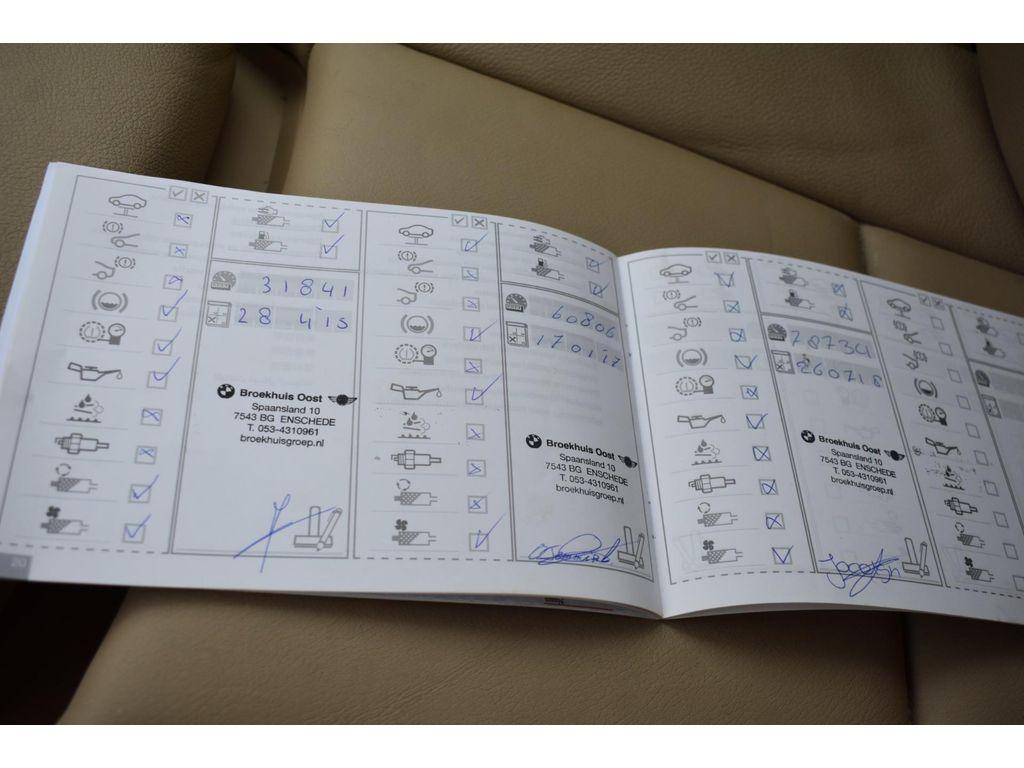 31841
28 4 15
Broekhuis Oost
Spaansland 10
7543 BG ENSCHEDE
T. 053-4310961
broekhuisgroep.nl
20
60806
170117
Broekhuis Oost
Spaansland 10
7543 BG ENSCHEDE
T. 053-4310961
broekhuisgroep.nl
78734
260718
Broekhuis Oost
Spaansland 10
7543 BG ENSCHEDE
T. 053-4310961
broekhuisgroep.nl